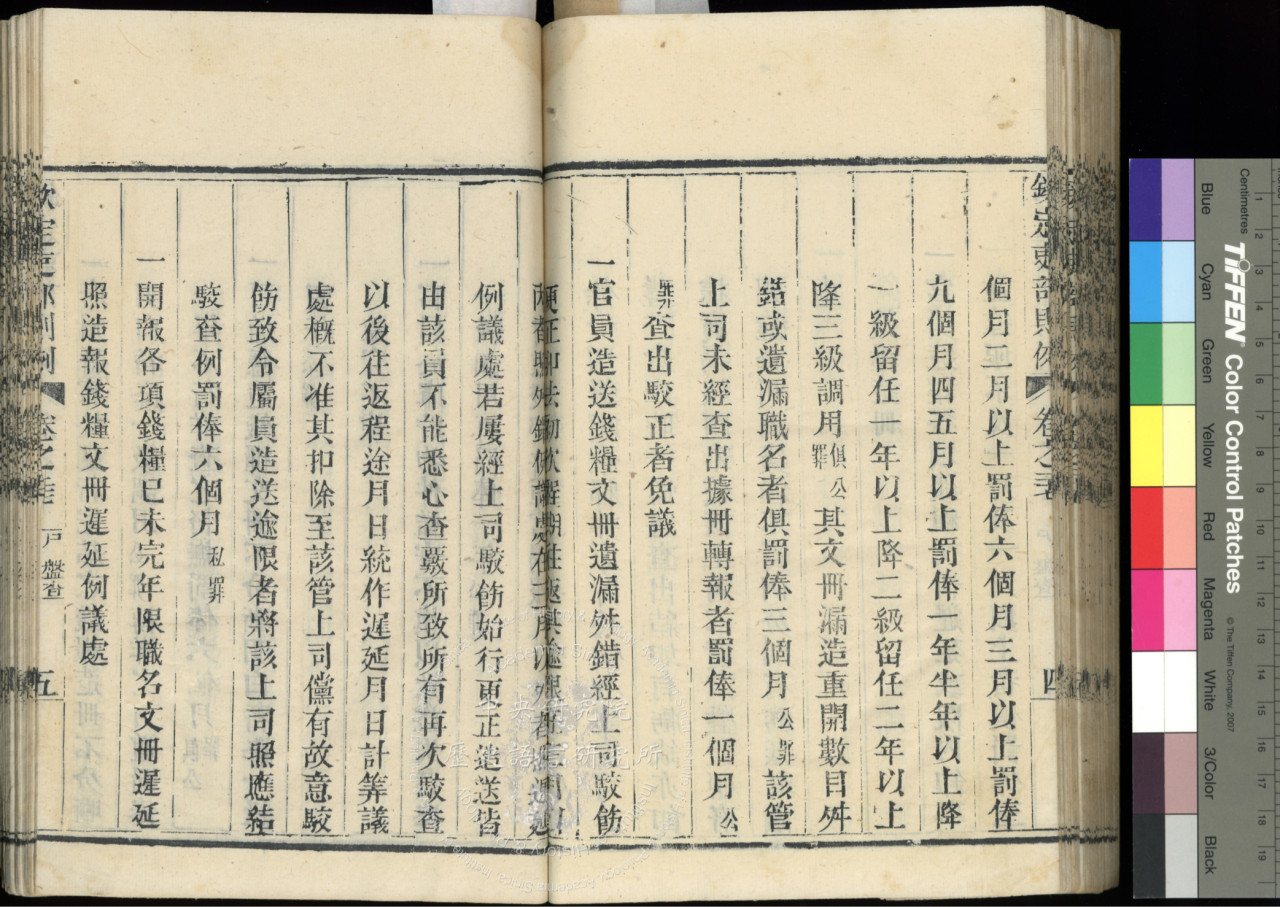 欽定吏部則例 卷之 四
個月二月以上罰俸六個月三月以上罰俸
九個月四五月以上罰俸一年半年以上降
一級留任一年以上降二級留任二年以上
降三級調用俱公罪其文冊漏造重開數目舛
錯或遺漏職名者俱罰俸三個月公罪該管
上司未經查出據冊轉報者罰俸一個月公
罪查出駮正者免議
一官員造送錢糧文冊遺漏舛錯經上司駮飭
例議處若屢經上司駮飭始行更正造送皆
由該員不能悉心查覈所致所有再次駮查
以後往返程途月日統作遲延月日計算議
處概不准其扣除至該管上司儻有故意駮
飭致令屬員造送逾限者將該上司照應結
駮查例罰俸六個月私罪
一開報各項錢糧已未完年限職名文冊遲延
照造報錢糧文冊遲延例議處
欽定吏部則例 卷之 戶 盤查 五
Centimetres
TIFFEN Color Control Patches
© The Tiffen Company, 2007
Blue Cyan Green Yellow Red Magenta White 3/Color Black
1 2 3 4 5 6 7 8 9 10 11 12 13 14 15 16 17 18 19